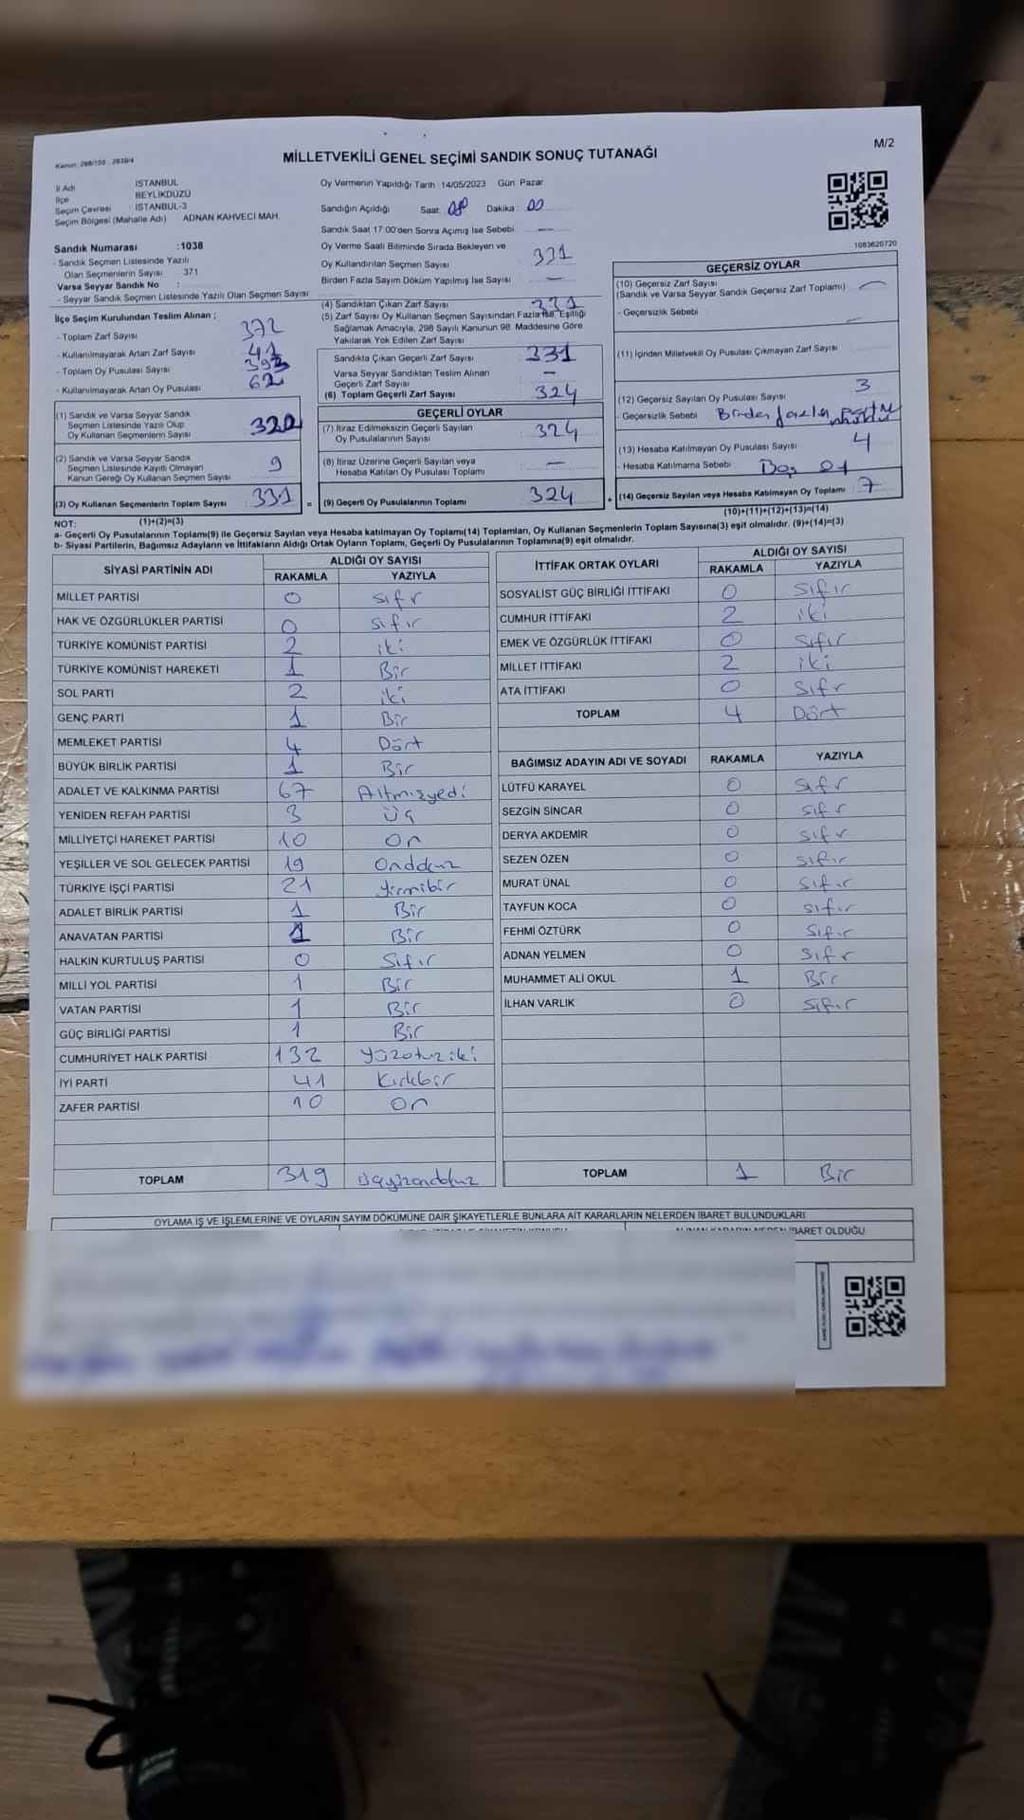 Kanun: 298/105 - 2839/4
M/2
MİLLETVEKİLİ GENEL SEÇİMİ SANDIK SONUÇ TUTANAĞI
İl Adı İSTANBUL
İlçe BEYLİKDÜZÜ
Seçim Çevresi İSTANBUL-3
Seçim Bölgesi (Mahalle Adı) ADNAN KAHVECİ MAH.
Sandık Numarası :1038
- Sandık Seçmen Listesinde Yazılı
Olan Seçmenlerin Sayısı 371
Varsa Seyyar Sandık No :
- Seyyar Sandık Seçmen Listesinde Yazılı Olan Seçmen Sayısı
Oy Vermenin Yapıldığı Tarih 14/05/2023 Gün Pazar
Sandığın Açıldığı Saat 08 Dakika 00
Sandık Saat 17.00'den Sonra Açımış İse Sebebi —
Oy Verme Saati Bitiminde Sırada Bekleyen ve
Oy Kullandırılan Seçmen Sayısı 331
Birden Fazla Sayım Döküm Yapılmış İse Sayısı —
1083620720
İlçe Seçim Kurulundan Teslim Alınan :
- Toplam Zarf Sayısı 372
- Kullanılmayarak Artan Zarf Sayısı 41
- Toplam Oy Pusulası Sayısı 393
- Kullanılmayarak Artan Oy Pusulası 62
(1) Sandık ve Varsa Seyyar Sandık
Seçmen Listesinde Yazılı Olup
Oy Kullanan Seçmenlerin Sayısı 322
(2) Sandık ve Varsa Seyyar Sandık
Seçmen Listesinde Kayıtlı Olmayan
Kanun Gereği Oy Kullanan Seçmen Sayısı 9
(3) Oy Kullanan Seçmenlerin Toplam Sayısı 331
(1)+(2)=(3)
(4) Sandıktan Çıkan Zarf Sayısı 331
(5) Zarf Sayısı Oy Kullanan Seçmen Sayısından Fazla İse, Eşitliği
Sağlamak Amacıyla, 298 Sayılı Kanunun 98. Maddesine Göre
Yakılarak Yok Edilen Zarf Sayısı
Sandıkta Çıkan Geçerli Zarf Sayısı 331
Varsa Seyyar Sandıktan Teslim Alınan
Geçerli Zarf Sayısı —
(6) Toplam Geçerli Zarf Sayısı 324
GEÇERLİ OYLAR
(7) İtiraz Edilmeksizin Geçerli Sayılan
Oy Pusulalarının Sayısı 324
(8) İtiraz Üzerine Geçerli Sayılan veya
Hesaba Katılan Oy Pusulası Toplamı —
= (9) Geçerli Oy Pusulalarının Toplamı 324
GEÇERSİZ OYLAR
(10) Geçersiz Zarf Sayısı
(Sandık ve Varsa Seyyar Sandık Geçersiz Zarf Toplamı) —
- Geçersizlik Sebebi —
(11) İçinden Milletvekili Oy Pusulası Çıkmayan Zarf Sayısı
(12) Geçersiz Sayılan Oy Pusulası Sayısı 3
- Geçersizlik Sebebi Birden fazla
(13) Hesaba Katılmayan Oy Pusulası Sayısı 4
- Hesaba Katılmama Sebebi Boş
+ (14) Geçersiz Sayılan veya Hesaba Katılmayan Oy Toplamı 7
(10)+(11)+(12)+(13)=(14)
NOT:
a- Geçerli Oy Pusulalarının Toplamı(9) ile Geçersiz Sayılan veya Hesaba katılmayan Oy Toplamı(14) Toplamları, Oy Kullanan Seçmenlerin Toplam Sayısına(3) eşit olmalıdır. (9)+(14)=(3)
b- Siyasi Partilerin, Bağımsız Adayların ve İttifakların Aldığı Ortak Oyların Toplamı, Geçerli Oy Pusulalarının Toplamına(9) eşit olmalıdır.
SİYASİ PARTİNİN ADI ALDIĞI OY SAYISI
RAKAMLA YAZIYLA
MİLLET PARTİSİ 0 Sıfır
HAK VE ÖZGÜRLÜKLER PARTİSİ 0 Sıfır
TÜRKİYE KOMÜNİST PARTİSİ 2 iki
TÜRKİYE KOMÜNİST HAREKETİ 1 Bir
SOL PARTİ 2 iki
GENÇ PARTİ 1 Bir
MEMLEKET PARTİSİ 4 Dört
BÜYÜK BİRLİK PARTİSİ 1 Bir
ADALET VE KALKINMA PARTİSİ 67 Altmışyedi
YENİDEN REFAH PARTİSİ 3 Üç
MİLLİYETÇİ HAREKET PARTİSİ 10 On
YEŞİLLER VE SOL GELECEK PARTİSİ 19 Ondokuz
TÜRKİYE İŞÇİ PARTİSİ 21 Yirmibir
ADALET BİRLİK PARTİSİ 1 Bir
ANAVATAN PARTİSİ 1 Bir
HALKIN KURTULUŞ PARTİSİ 0 Sıfır
MİLLİ YOL PARTİSİ 1 Bir
VATAN PARTİSİ 1 Bir
GÜÇ BİRLİĞİ PARTİSİ 1 Bir
CUMHURİYET HALK PARTİSİ 132 Yüzotuziki
İYİ PARTİ 41 Kırkbir
ZAFER PARTİSİ 10 On
TOPLAM 319 Üçyüzondokuz
İTTİFAK ORTAK OYLARI ALDIĞI OY SAYISI
RAKAMLA YAZIYLA
SOSYALİST GÜÇ BİRLİĞİ İTTİFAKI 0 Sıfır
CUMHUR İTTİFAKI 2 iki
EMEK VE ÖZGÜRLÜK İTTİFAKI 0 Sıfır
MİLLET İTTİFAKI 2 iki
ATA İTTİFAKI 0 Sıfır
TOPLAM 4 Dört
BAĞIMSIZ ADAYIN ADI VE SOYADI RAKAMLA YAZIYLA
LÜTFÜ KARAYEL 0 Sıfır
SEZGİN SİNCAR 0 Sıfır
DERYA AKDEMİR 0 Sıfır
SEZEN ÖZEN 0 Sıfır
MURAT ÜNAL 0 Sıfır
TAYFUN KOCA 0 Sıfır
FEHMİ ÖZTÜRK 0 Sıfır
ADNAN YELMEN 0 Sıfır
MUHAMMET ALİ OKUL 1 Bir
İLHAN VARLIK 0 Sıfır
TOPLAM 1 Bir
OYLAMA İŞ VE İŞLEMLERİNE VE OYLARIN SAYIM DÖKÜMÜNE DAİR ŞİKAYETLERLE BUNLARA AİT KARARLARIN NELERDEN İBARET BULUNDUKLARI
ALINAN KARARIN NEDEN İBARET OLDUĞU